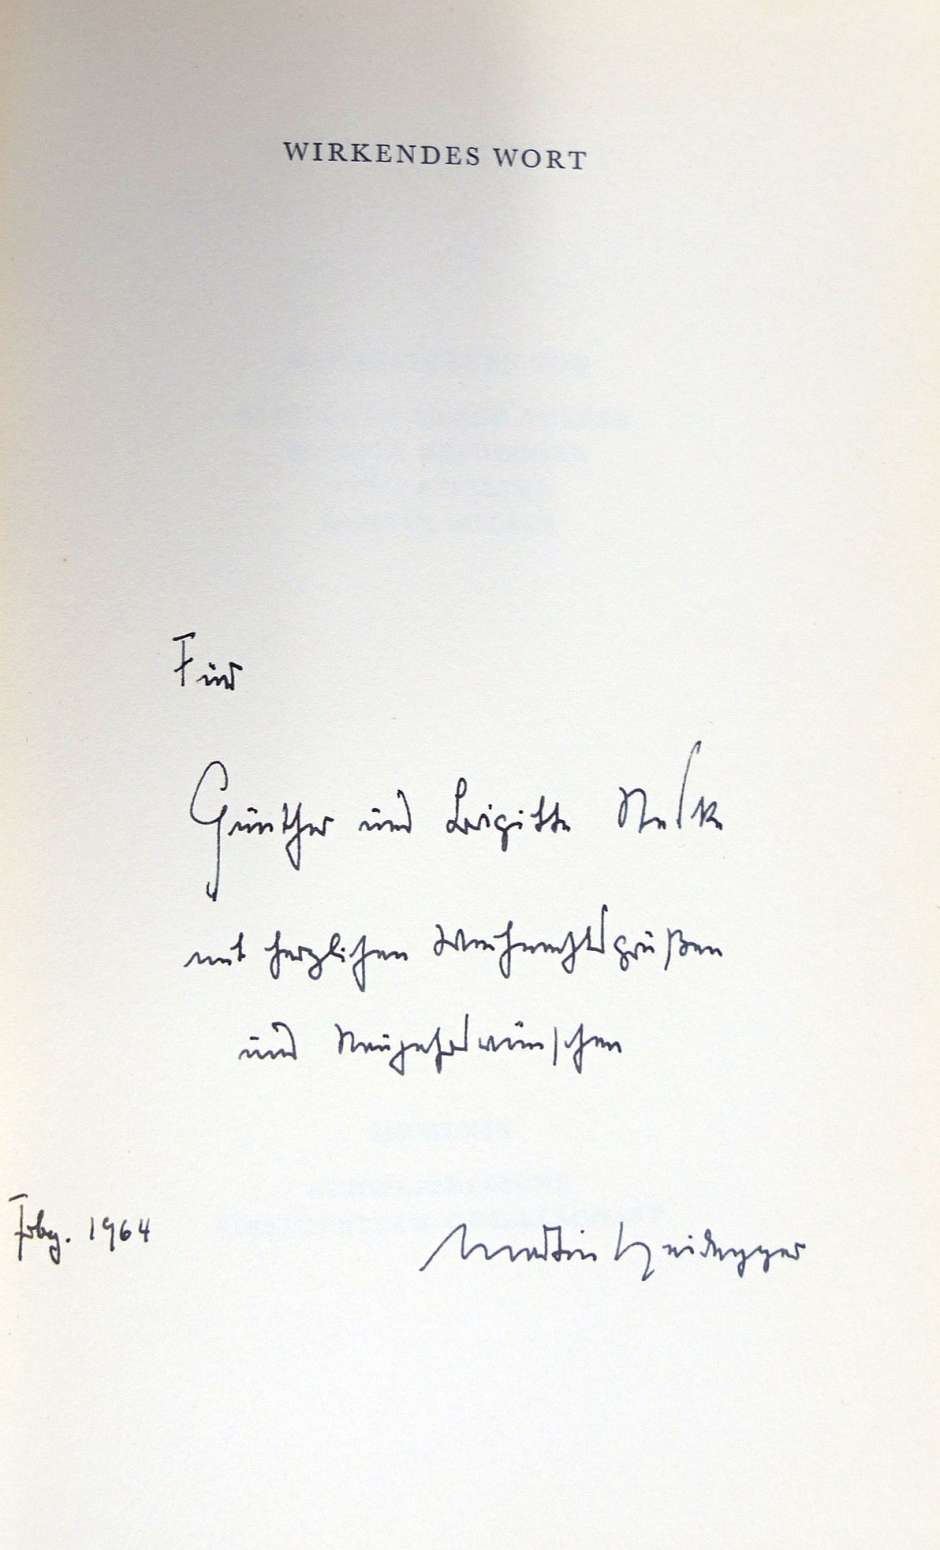 WIRKENDES WORT
Für
Günther und Brigitte Neske
mit herzlichen Weihnachtsgrüßen
und Neujahrswünschen
Frbg. 1964
Martin Heidegger